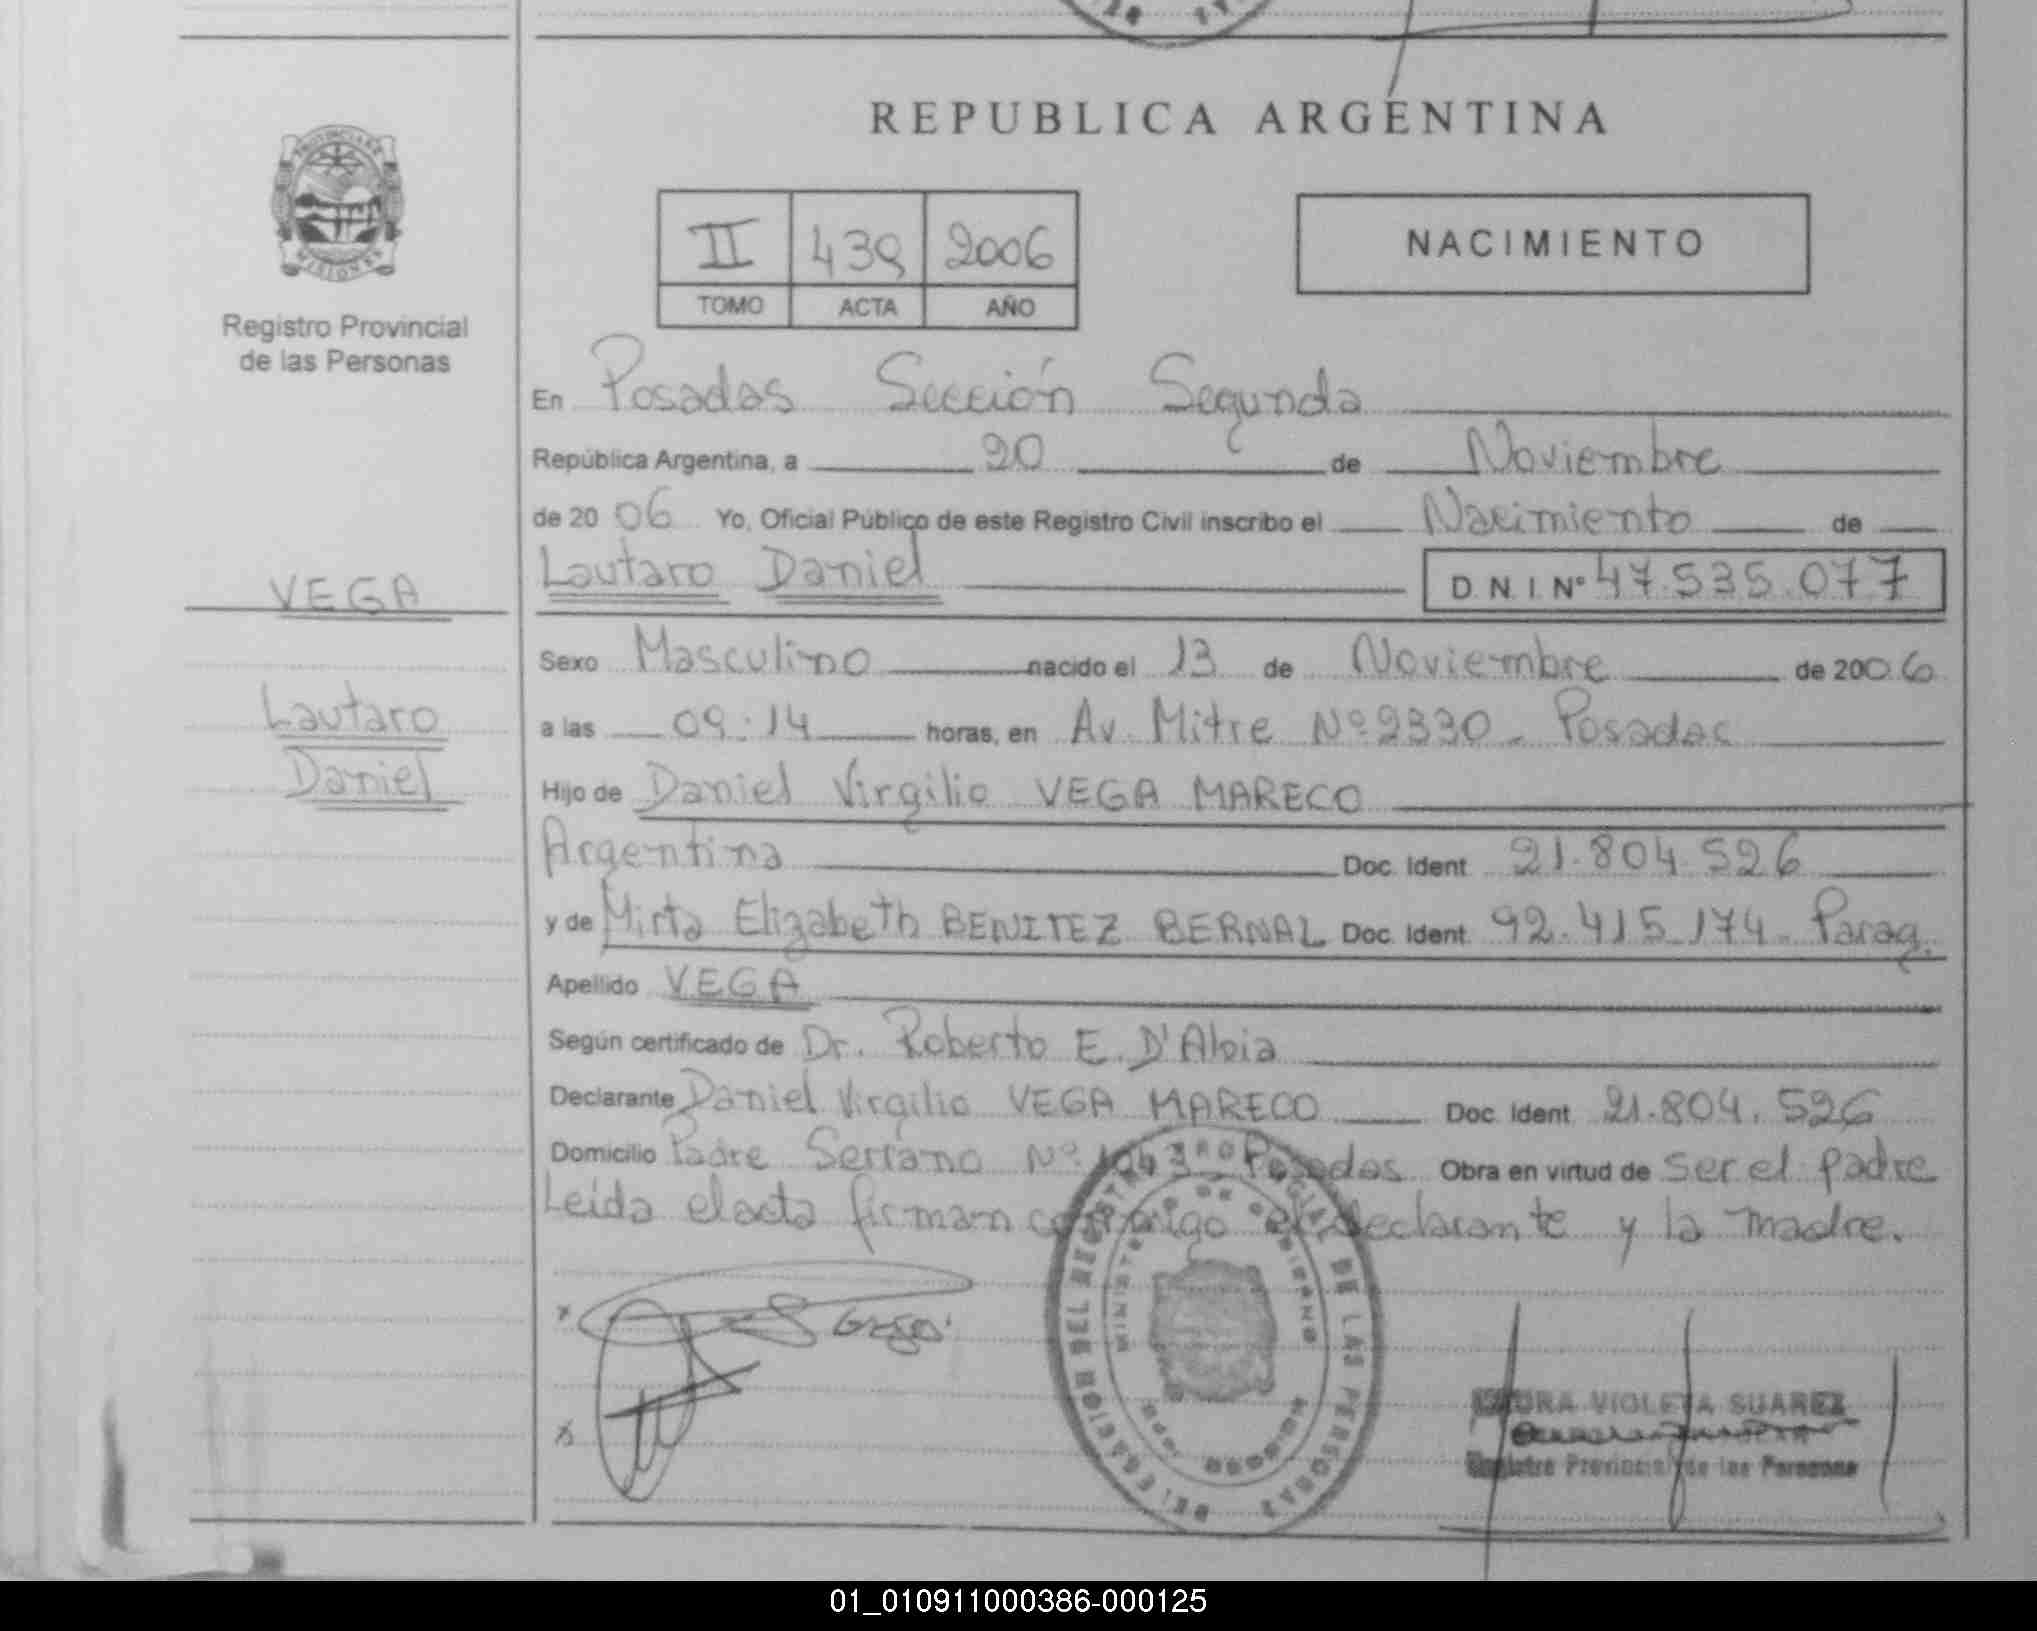 REPUBLICA ARGENTINA
PROVINCIA DE
MISIONES
Registro Provincial
de las Personas
II 439 2006
TOMO ACTA AÑO
NACIMIENTO
En Posadas Sección Segunda
República Argentina, a 20 de Noviembre
de 2006 Yo, Oficial Público de este Registro Civil inscribo el Nacimiento de
Lautaro Daniel D.N.I. Nº 47.535.077
VEGA
Lautaro
Daniel
Sexo Masculino nacido el 13 de Noviembre de 2006
a las 09:14 horas, en Av. Mitre Nº 2330 - Posadas
Hijo de Daniel Virgilio VEGA MARECO
Argentina Doc. Ident. 21.804.526
y de Mirta Elizabeth BENITEZ BERNAL Doc. Ident. 92.415.174 - Parag.
Apellido VEGA
Según certificado de Dr. Roberto E. D'Aloia
Declarante Daniel Virgilio VEGA MARECO Doc. Ident. 21.804.526
Domicilio Padre Serrano Nº Posadas Obra en virtud de ser el padre
Leída el acta firman conmigo el declarante y la madre.
DELEGACION DEL REGISTRO DE LAS PERSONAS
VIOLETA SUAREZ
Registro Provincial de las Personas
01_010911000386-000125